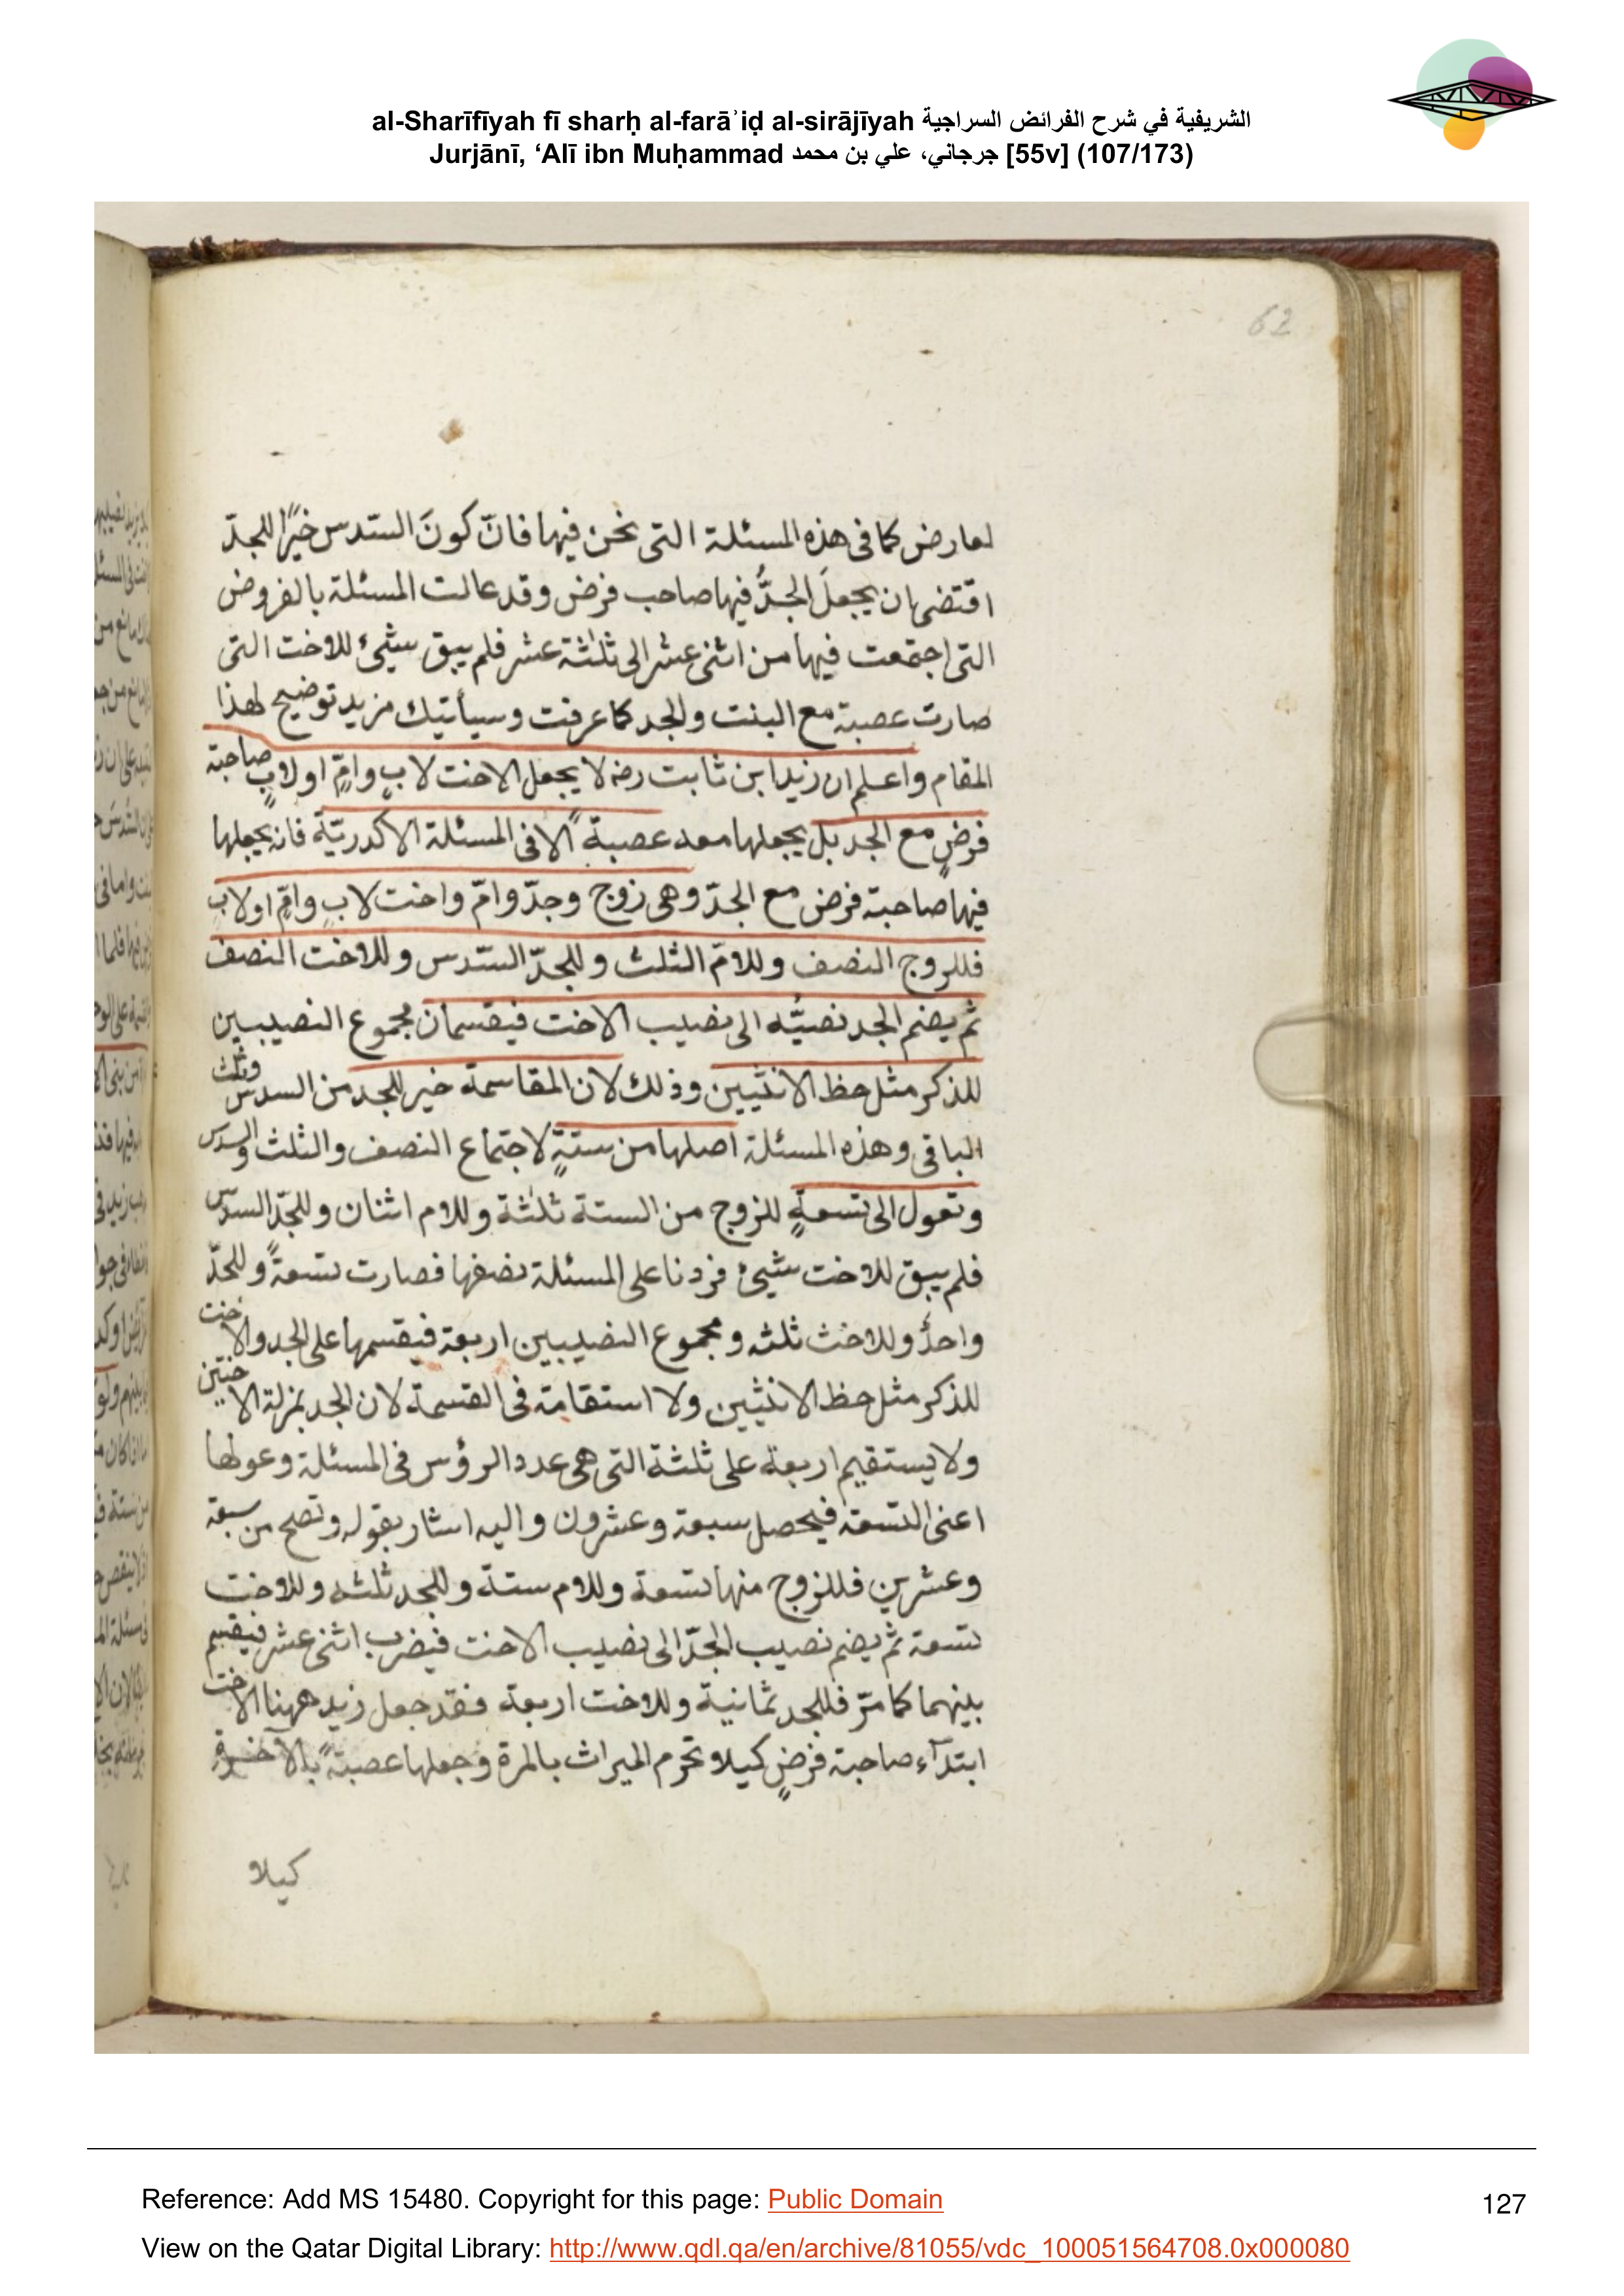 al-Sharīfīyah fī sharḥ al-farāʾiḍ al-sirājīyah الشريفية في شرح الفرائض السراجية
Jurjānī, ‘Alī ibn Muḥammad جرجاني، علي بن محمد [55v] (107/173)
62
لعارض كما فى هذه المسئلة التى نحن فيها فانّ كونَ السّدس خيرًا للجدّ
اقتضى ان يجعلَ الجدُّ فيها صاحب فرض وقد عالت المسئلة بالفروض
التى اجتمعت فيها من اثنى عشر الى ثلٰثة عشر فلم يبق شيئ للاخت التى
صارت عصبة مع البنت والجد كما عرفت وسيأتيك مزيد توضيح لهذا
المقام واعلم ان زيدا بن ثابت رضه لا يجعل الاخت لابٍ وامٍّ اولابٍ صاحبة
فرضٍ مع الجد بل يجعلها معه عصبةً الا فى المسئلة الاكدريّة فانه يجعلها
فيها صاحبة فرض مع الجدّ وهى زوج وجدّ وامّ واخت لابٍ وامٍّ اولاب
فللزوج النصف وللامّ الثلث وللجدّ السّدس وللاخت النصف
ثم يضم الجد نصيبه الى نصيب الاخت فيقسمان مجموع النصيبين
للذكر مثل حظ الانثيين وذلك لان المقاسمة خير للجد من السدس وثلث
الباقى وهذه المسئلة اصلها من ستةٍ لاجتماع النصف والثلث والسدس
وتعول الى تسعةٍ للزوج من الستة ثلٰثة وللام اثنان وللجدّ السدس
فلم يبق للاخت شيئ فزدنا على المسئلة نصفها فصارت تسعةً وللجدّ
واحدٌ وللاخت ثلثه ومجموع النصيبين اربعة فيقسمها على الجد والاخت
للذكر مثل حظ الانثيين ولا استقامة فى القسمة لان الجد بمنزلة الاختين
ولا يستقيم اربعة على ثلثة التى هى عدد الرؤس فى المسئلة وعولها
اعنى التسعة فيحصل سبعة وعشرون واليه اشار بقوله وتصح من سبعة
وعشرين فللزوج منها تسعة وللام ستة وللجد ثلثه وللاخت
تسعة ثم يضم نصيب الجدّ الى نصيب الاخت فيضرب اثنى عشر فيقسم
بينهما كما مرّ فللجد ثمانية وللاخت اربعة فقد جعل زيد ههنا الاخت
ابتدآء صاحبة فرضٍ كيلا تحرم الميراث بالمرة وجعلها عصبةً بالآخرة
كيلا
Reference: Add MS 15480. Copyright for this page: Public Domain
127
View on the Qatar Digital Library: http://www.qdl.qa/en/archive/81055/vdc_100051564708.0x000080